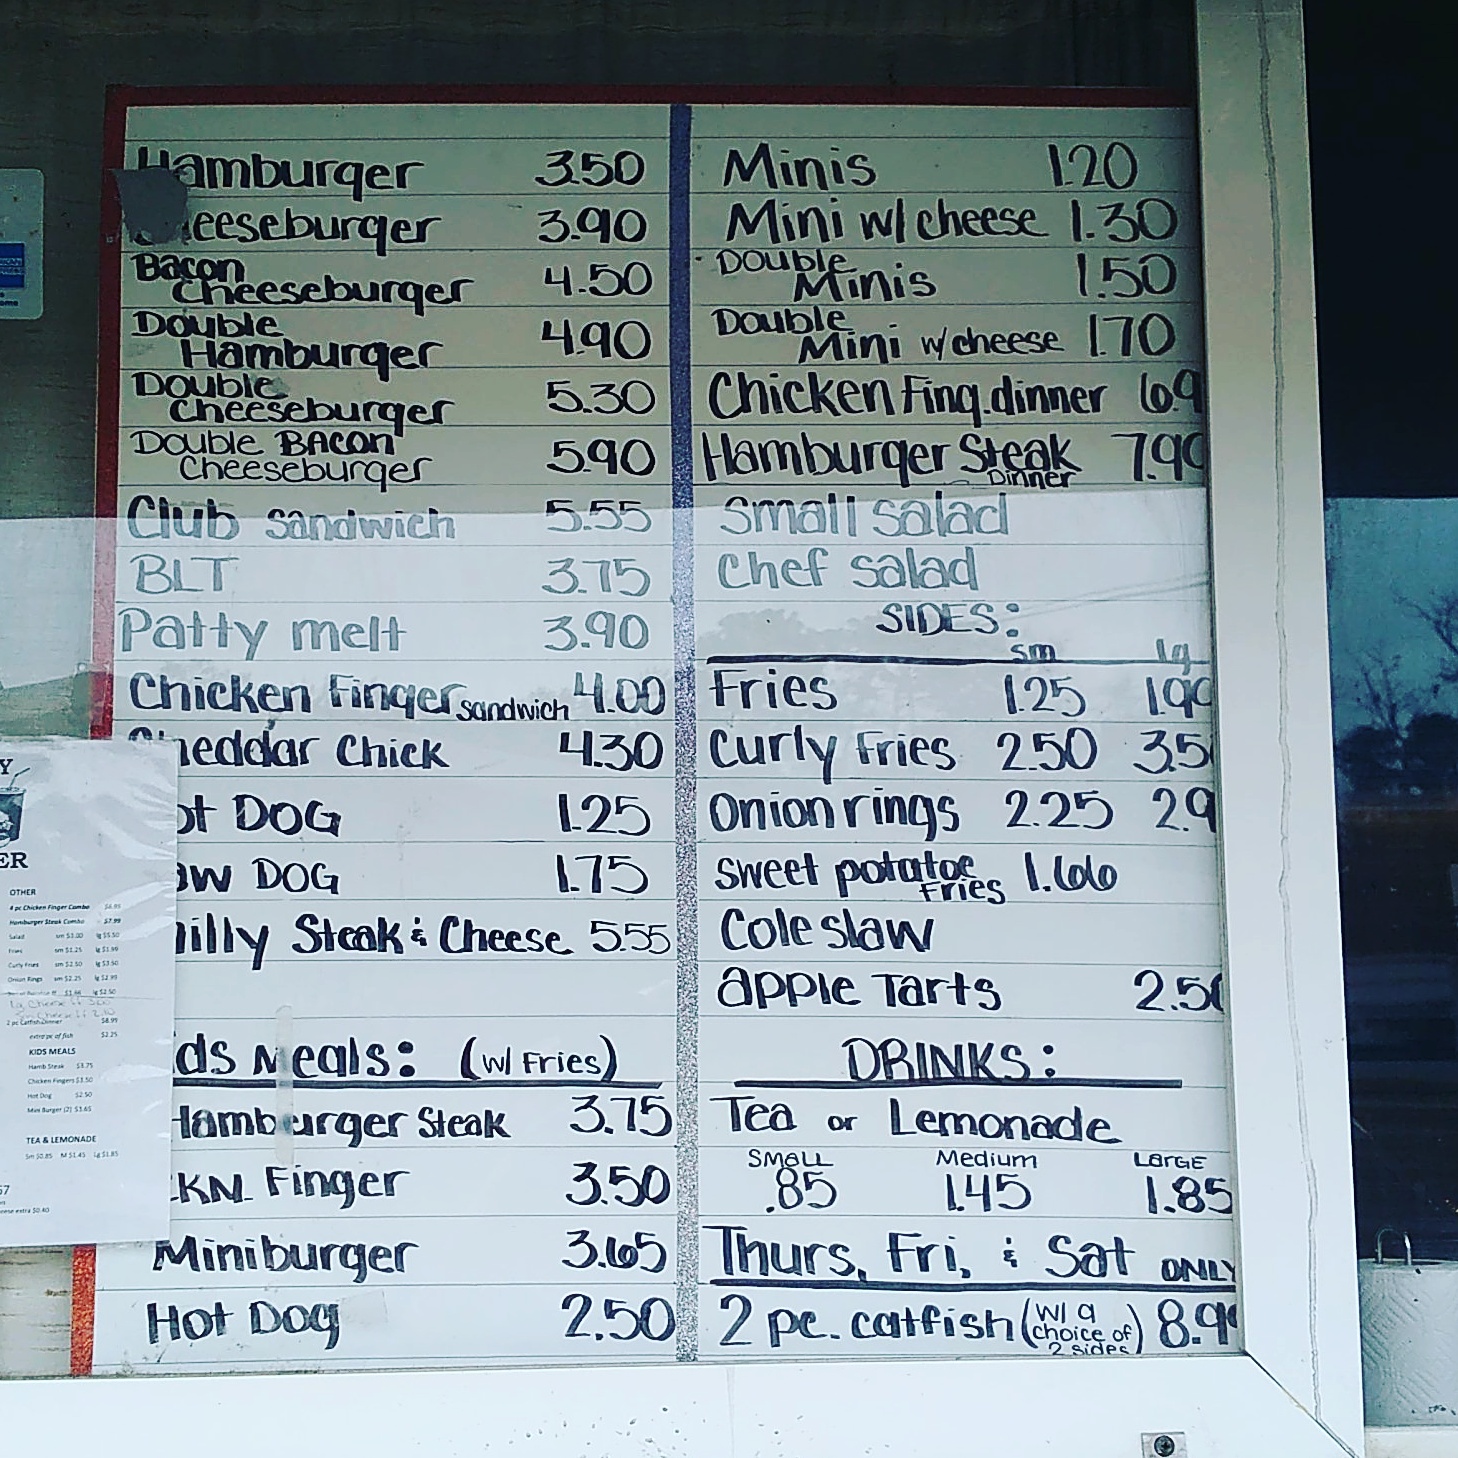 Hamburger 3.50
Cheeseburger 3.90
Bacon Cheeseburger 4.50
Double Hamburger 4.90
Double Cheeseburger 5.30
Double Bacon Cheeseburger 5.90
Club sandwich 5.55
BLT 3.75
Patty melt 3.90
Chicken Finger sandwich 4.00
Cheddar Chick 4.30
ot DOG 1.25
aw DOG 1.75
hilly Steak & Cheese 5.55
ds Meals: (w/ Fries)
Hamburger Steak 3.75
CKN. Finger 3.50
Miniburger 3.65
Hot Dog 2.50
Minis 1.20
Mini w/ cheese 1.30
Double Minis 1.50
Double Mini w/ cheese 1.70
Chicken Fing. dinner 6.9
Hamburger Steak Dinner 7.99
Small salad
Chef salad
SIDES:
sm lg
Fries 1.25 1.99
Curly Fries 2.50 3.5
Onion rings 2.25 2.9
Sweet potatoe Fries 1.66
Cole slaw
Apple Tarts 2.50
DRINKS:
Tea or Lemonade
Small Medium Large
.85 1.45 1.85
Thurs, Fri, & Sat ONLY
2 pc. catfish (w/ a choice of 2 sides) 8.99
Y
ER
OTHER
4 pc Chicken Finger Combo $6.99
Hamburger Steak Combo $7.99
Salad sm $3.00 lg $5.50
Fries sm $1.25 lg $1.99
Curly Fries sm $2.50 lg $3.50
Onion Rings sm $2.25 lg $2.99
2 pc Catfish Dinner $8.99
extra pc of fish $2.25
KIDS MEALS
Hamb Steak $3.75
Chicken Fingers $3.50
Hot Dog $2.50
Mini Burger (2) $3.65
TEA & LEMONADE
Sm $0.85 M $1.45 Lg $1.85
67
eese extra $0.40